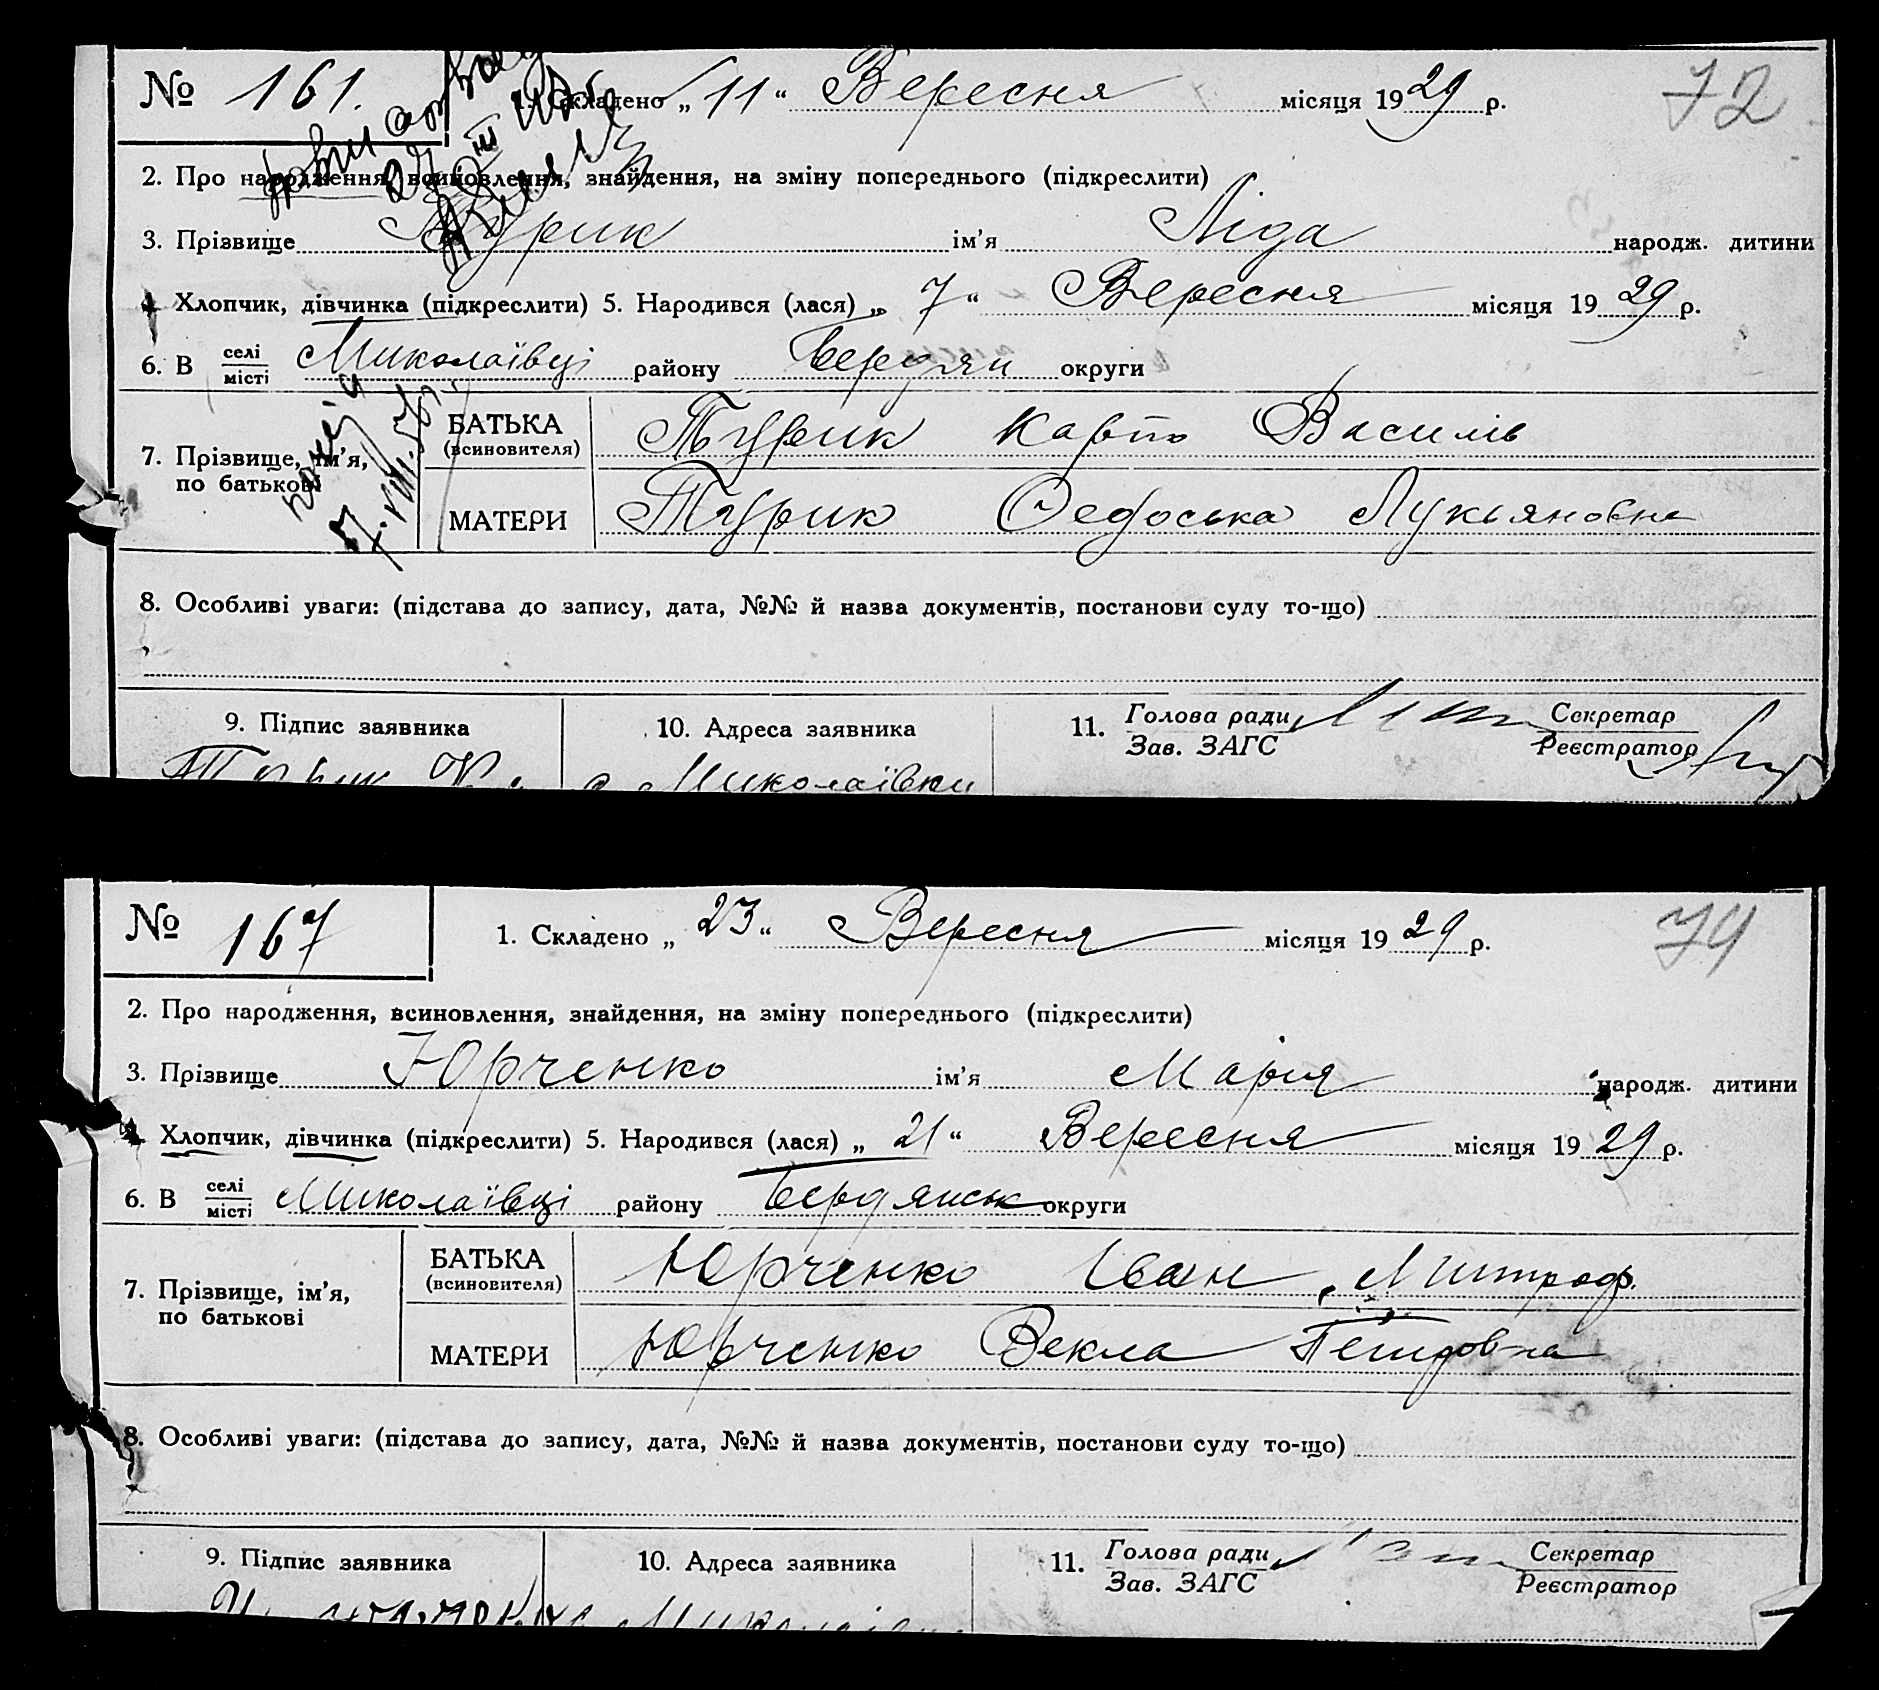 № 161. 1. Складено „ 11 “ Вересня місяця 1929 р. 72
2. Про народження, всиновлення, знайдення, на зміну попереднього (підкреслити)
3. Прізвище Турик ім’я Ліда народж. дитини
4. Хлопчик, дівчинка (підкреслити) 5. Народився (лася) „ 7 “ Вересня місяця 1929 р.
6. В селі Миколаївці району Бердян округи
місті
БАТЬКА Турик Карпо Василів
(всиновителя)
7. Прізвище, ім’я,
по батькові
МАТЕРИ Турик Федоська Лукьяновна
8. Особливі уваги: (підстава до запису, дата, №№ й назва документів, постанови суду то-що)
9. Підпис заявника 10. Адреса заявника 11. Голова ради Секретар
Зав. ЗАГС Реєстратор
Турик К. с Миколаївки
№ 167 1. Складено „ 23 “ Вересня місяця 1929 р. 74
2. Про народження, всиновлення, знайдення, на зміну попереднього (підкреслити)
3. Прізвище Юрченко ім’я Марія народж. дитини
4. Хлопчик, дівчинка (підкреслити) 5. Народився (лася) „ 21 “ Вересня місяця 1929 р.
6. В селі Миколаївці району Бердянськ округи
місті
БАТЬКА Юрченко Іван Митроф.
(всиновителя)
7. Прізвище, ім’я,
по батькові
МАТЕРИ Юрченко Векла Петровна
8. Особливі уваги: (підстава до запису, дата, №№ й назва документів, постанови суду то-що)
9. Підпис заявника 10. Адреса заявника 11. Голова ради Секретар
Зав. ЗАГС Реєстратор